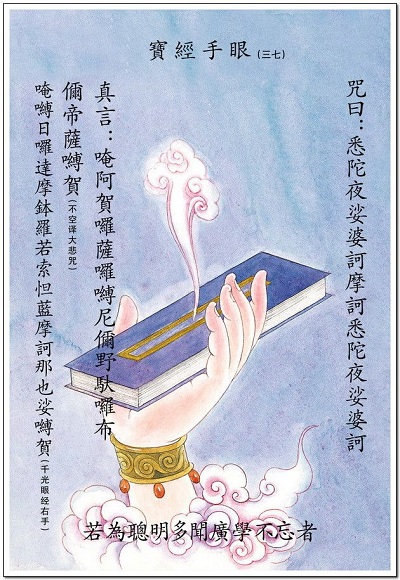 寶經手眼(三七)
咒曰：悉陀夜娑婆訶摩訶悉陀夜娑婆訶
真言：唵阿賀囉薩囉嚩尼儞野馱囉布
儞帝薩嚩賀(不空译大悲咒)
唵嚩日囉達摩鉢羅若索怛藍摩訶那也娑嚩賀(千光眼经右手)
若為聰明多聞廣學不忘者